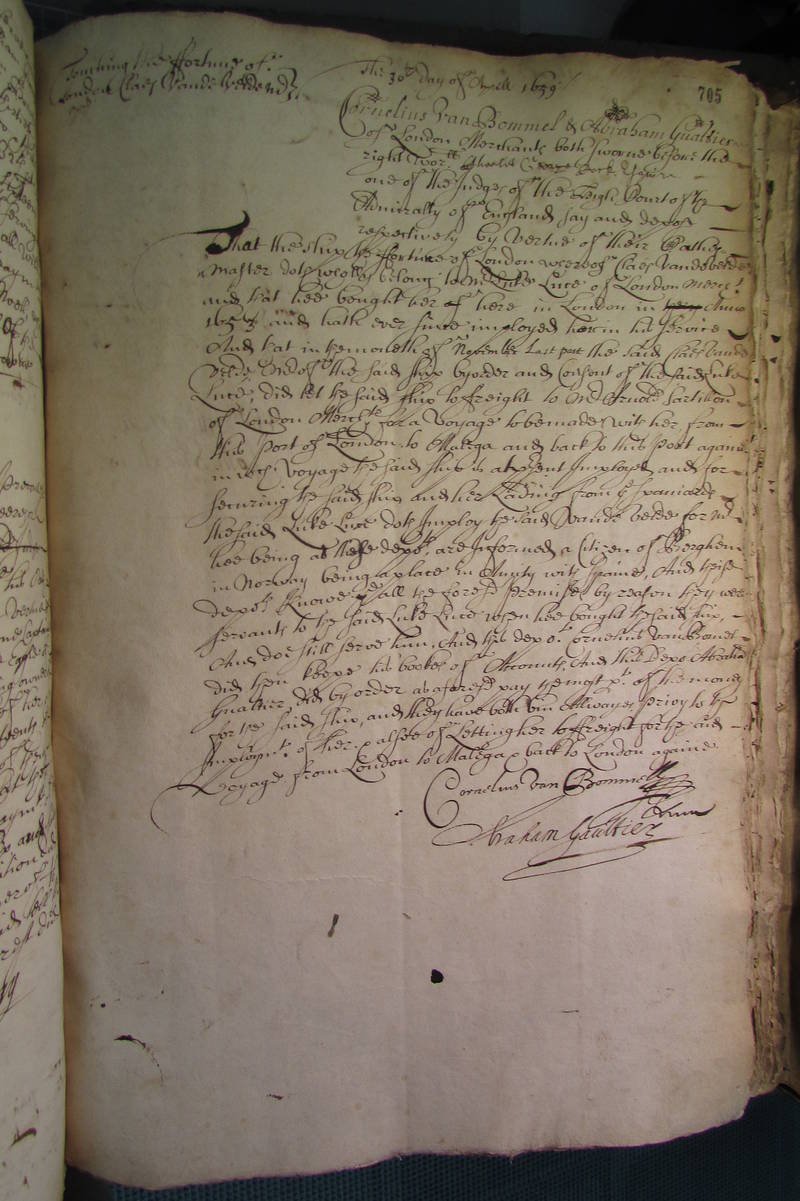 Touching the ffortune of
London Claes Vande Velde
The 30th day of Aprill 1659
705
Cornelius Van Bommel & Abraham Gualtier
of London Merchants both sworne before the
right wor:ll Charles George Cock Esquire
one of the Judges of the High Court of the
Admiralty of England say and depose
respectively by vertue of their Oathes
That the ship the ffortune of London whereof Claes Vandevelde
Master doth wholly belong to Mr Luke Luce of London Mercht
and that hee bought her of here in London in Anno
1657 and hath ever since imployed her in his service
And that in the moneth of November last past the said Claes Vande
Velde of the said ship by order and Consent of the said Luke
Luce, did let the said ship to freight to Mr Arnold
of London Mercht, for a Voyage to be made with her from
this Port of London to Malega and back to this Port againe
in wch Voyage the said ship is at present Imployed and for
securing the said ship and her Lading from ye Spaniards
the said Luke Luce doth Imploy the said Vande Velde for Mr
hee being as these depts are Informed a Citizen of Berghen
in Norway being a place in Amity with Spaine, And these
depts knowe all the foresd Premisses by reason they were
servants to the said Luke Luce when hee bought the said ship,
And doe still serve him, And this depot Cornelius van Bomel
did then keepe his bookes of Accounts, And this Depot Abraha
Gualtier did by order as aforesd pay the most pt of the money
for the said ship, and they have both bin allwayes privy to the
Imploymt of her & alsoe of Letting her to freight for the said
Voyage from London to Malega & back to London againe
Cornelius van Bommel
Abraham Gaultier